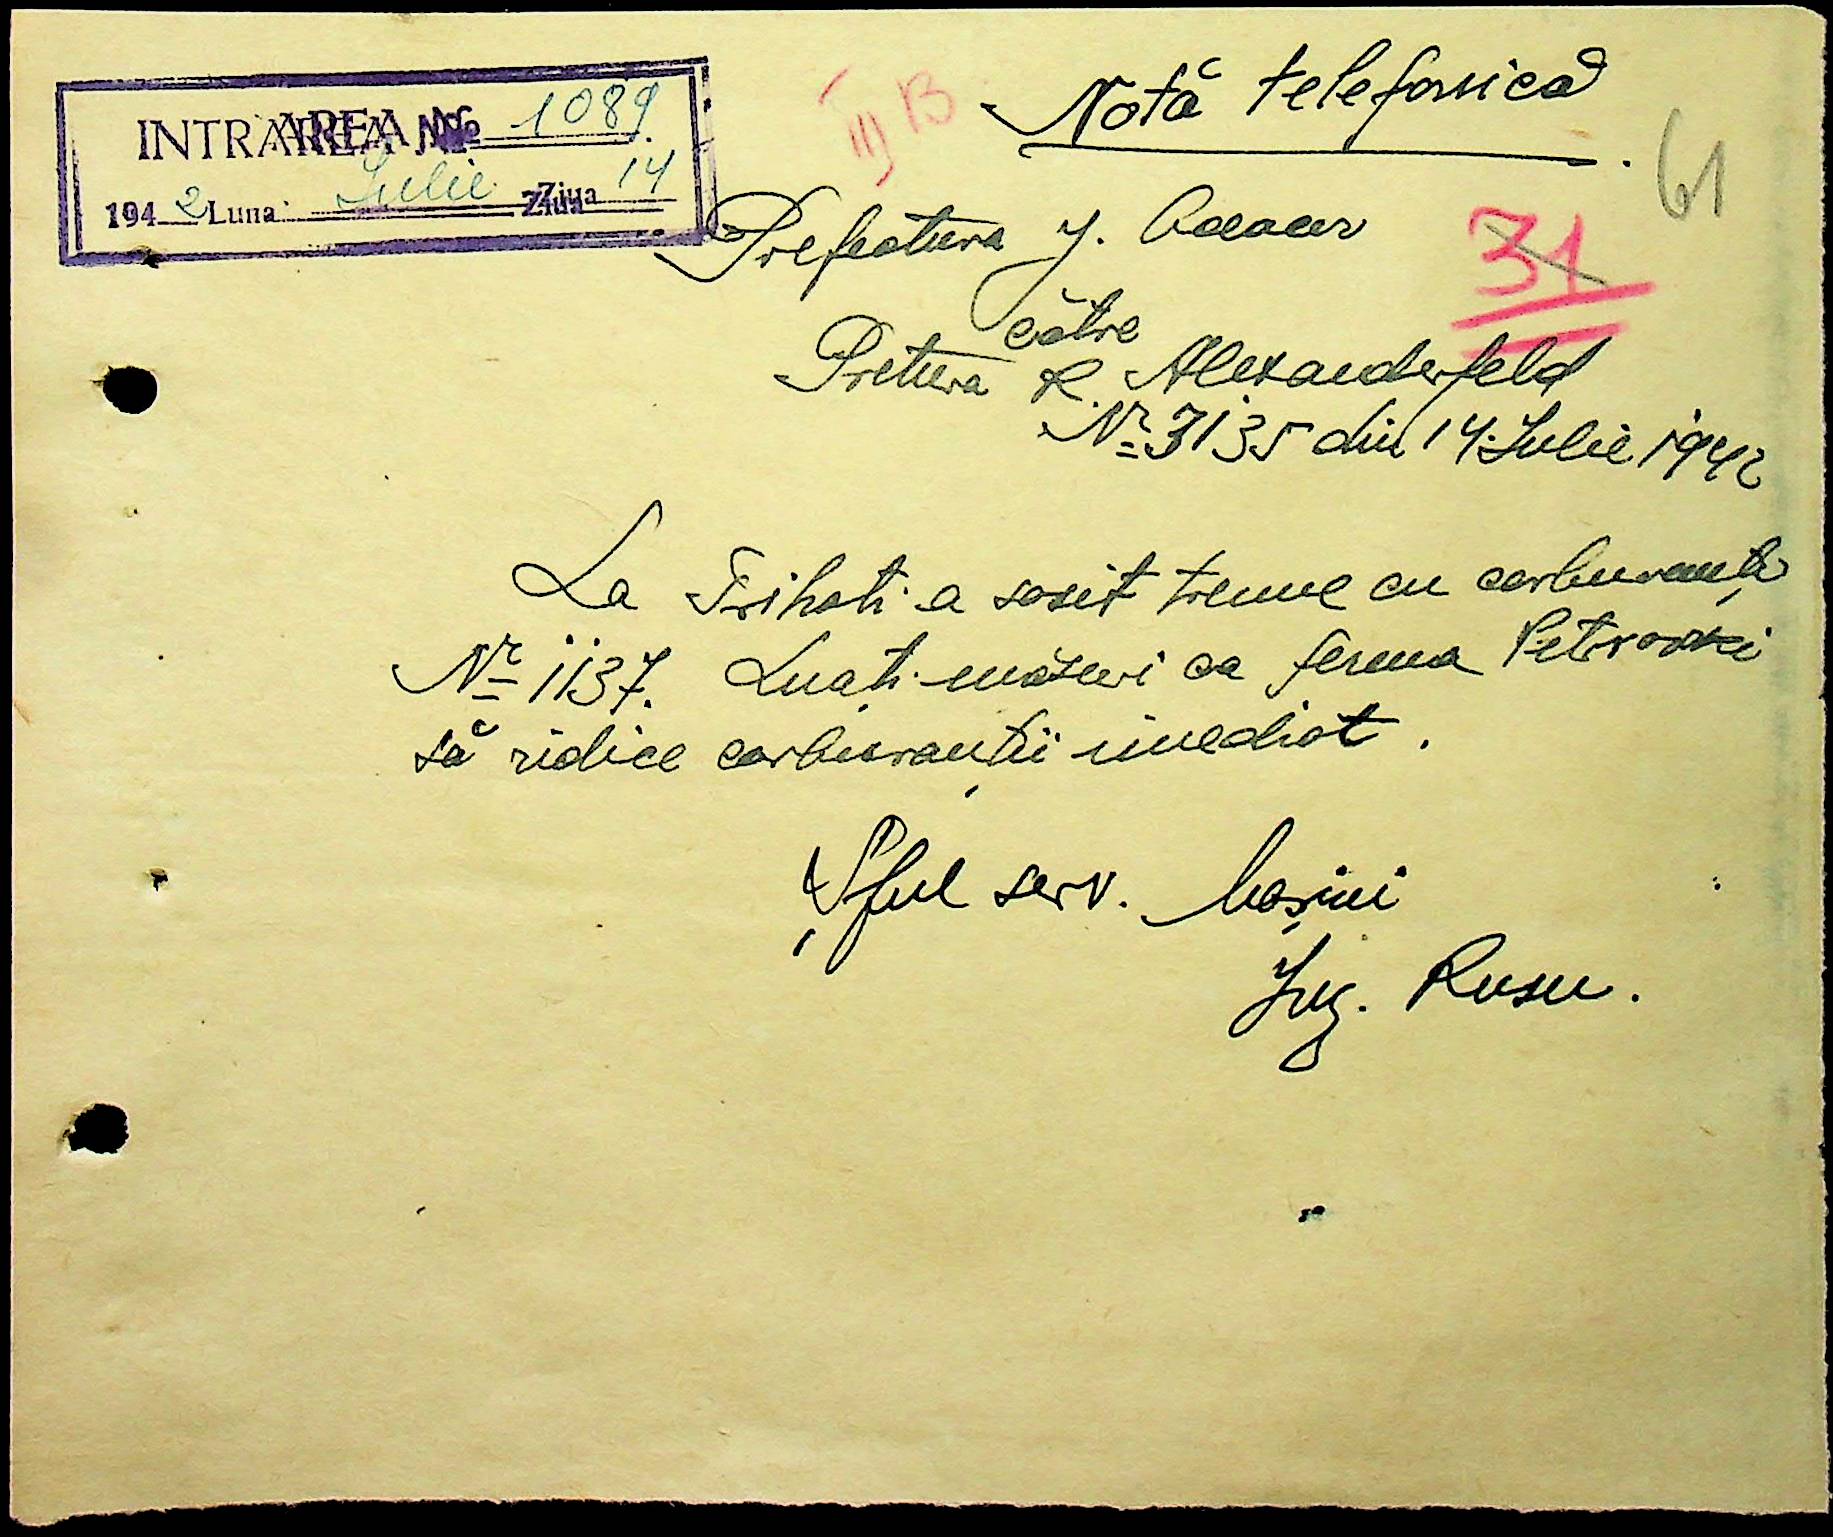 INTRAREA No 1089.
1942 Luna Iulie Ziua 14
III B
Notă telefonică
61
Prefectura J. Oceacov
31
către
Pretura R. Alexanderfeld
Nr 7135 din 14 Iulie 1942
La Trihati a sosit trenul cu carburanți
Nr 1137. Luați măsuri ca ferma Petrovski
să ridice carburanții imediat.
Șful serv. Mașini
Ing. Rusu.